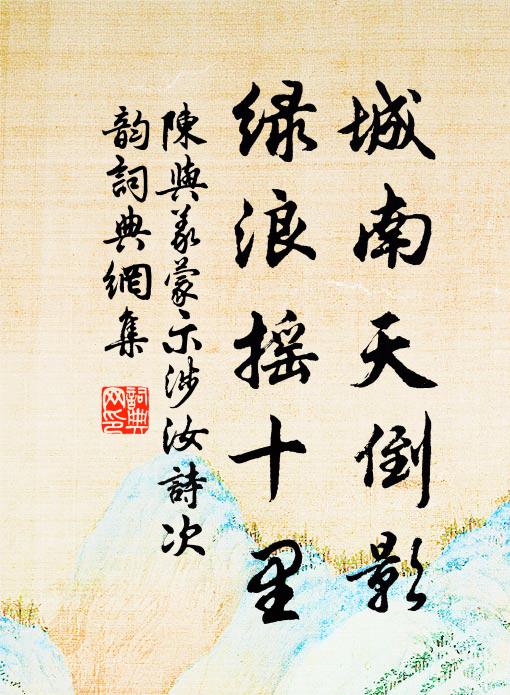 城南天倒影
綠浪摇十里
陳與義蒙示涉汝詩次
韵詞典網集
詞典
网印